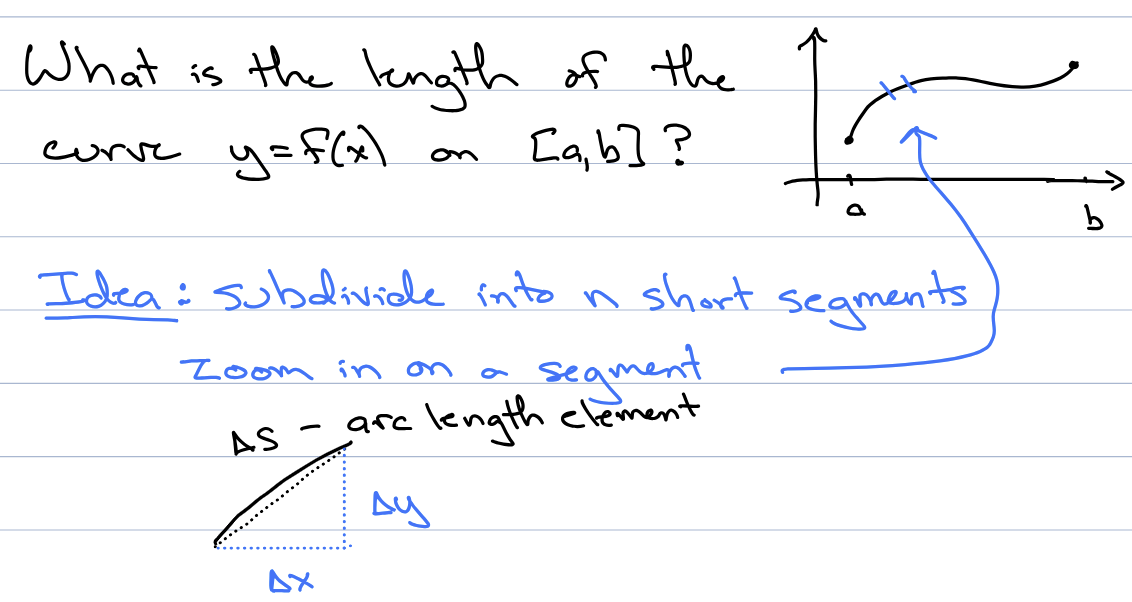 What is the length of the
curve y=f(x) on [a,b]?
a
b
Idea: subdivide into n short segments
Zoom in on a segment
ΔS - arc length element
Δy
Δx